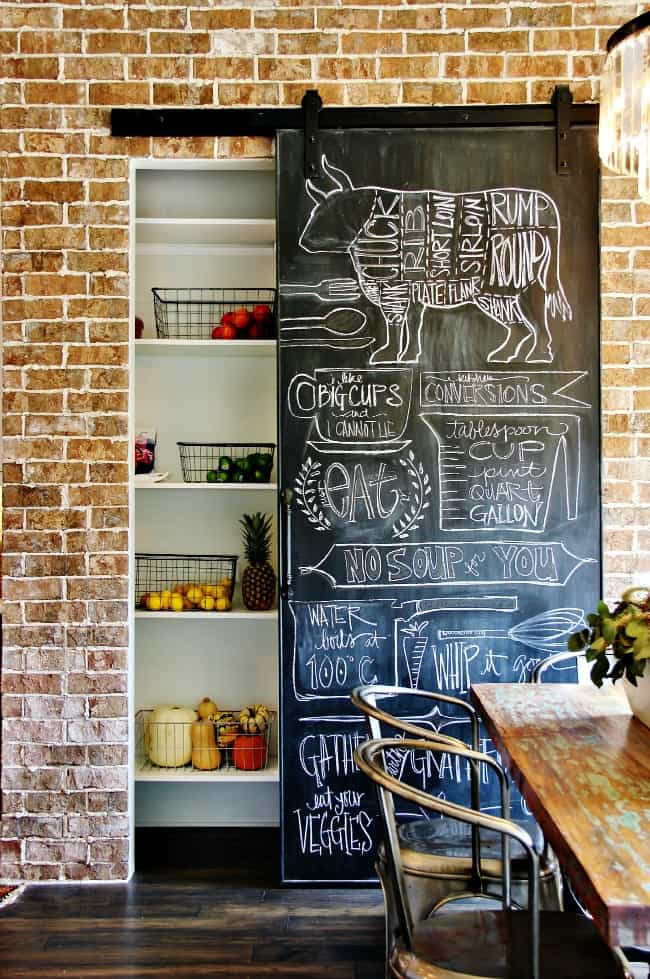 CHUCK RIB SHORTLOIN SIRLOIN RUMP
ROUND
SHANK PLATE FLANK SHANK
i like
BIG CUPS
and
I CANNOT LIE
kitchen
CONVERSIONS
tablespoon
CUP
pint
QUART
GALLON
EAT
NO SOUP for YOU
WATER
boils at
100°C
WHIP it
GATHER
with
GRAT
eat your
VEGGIES